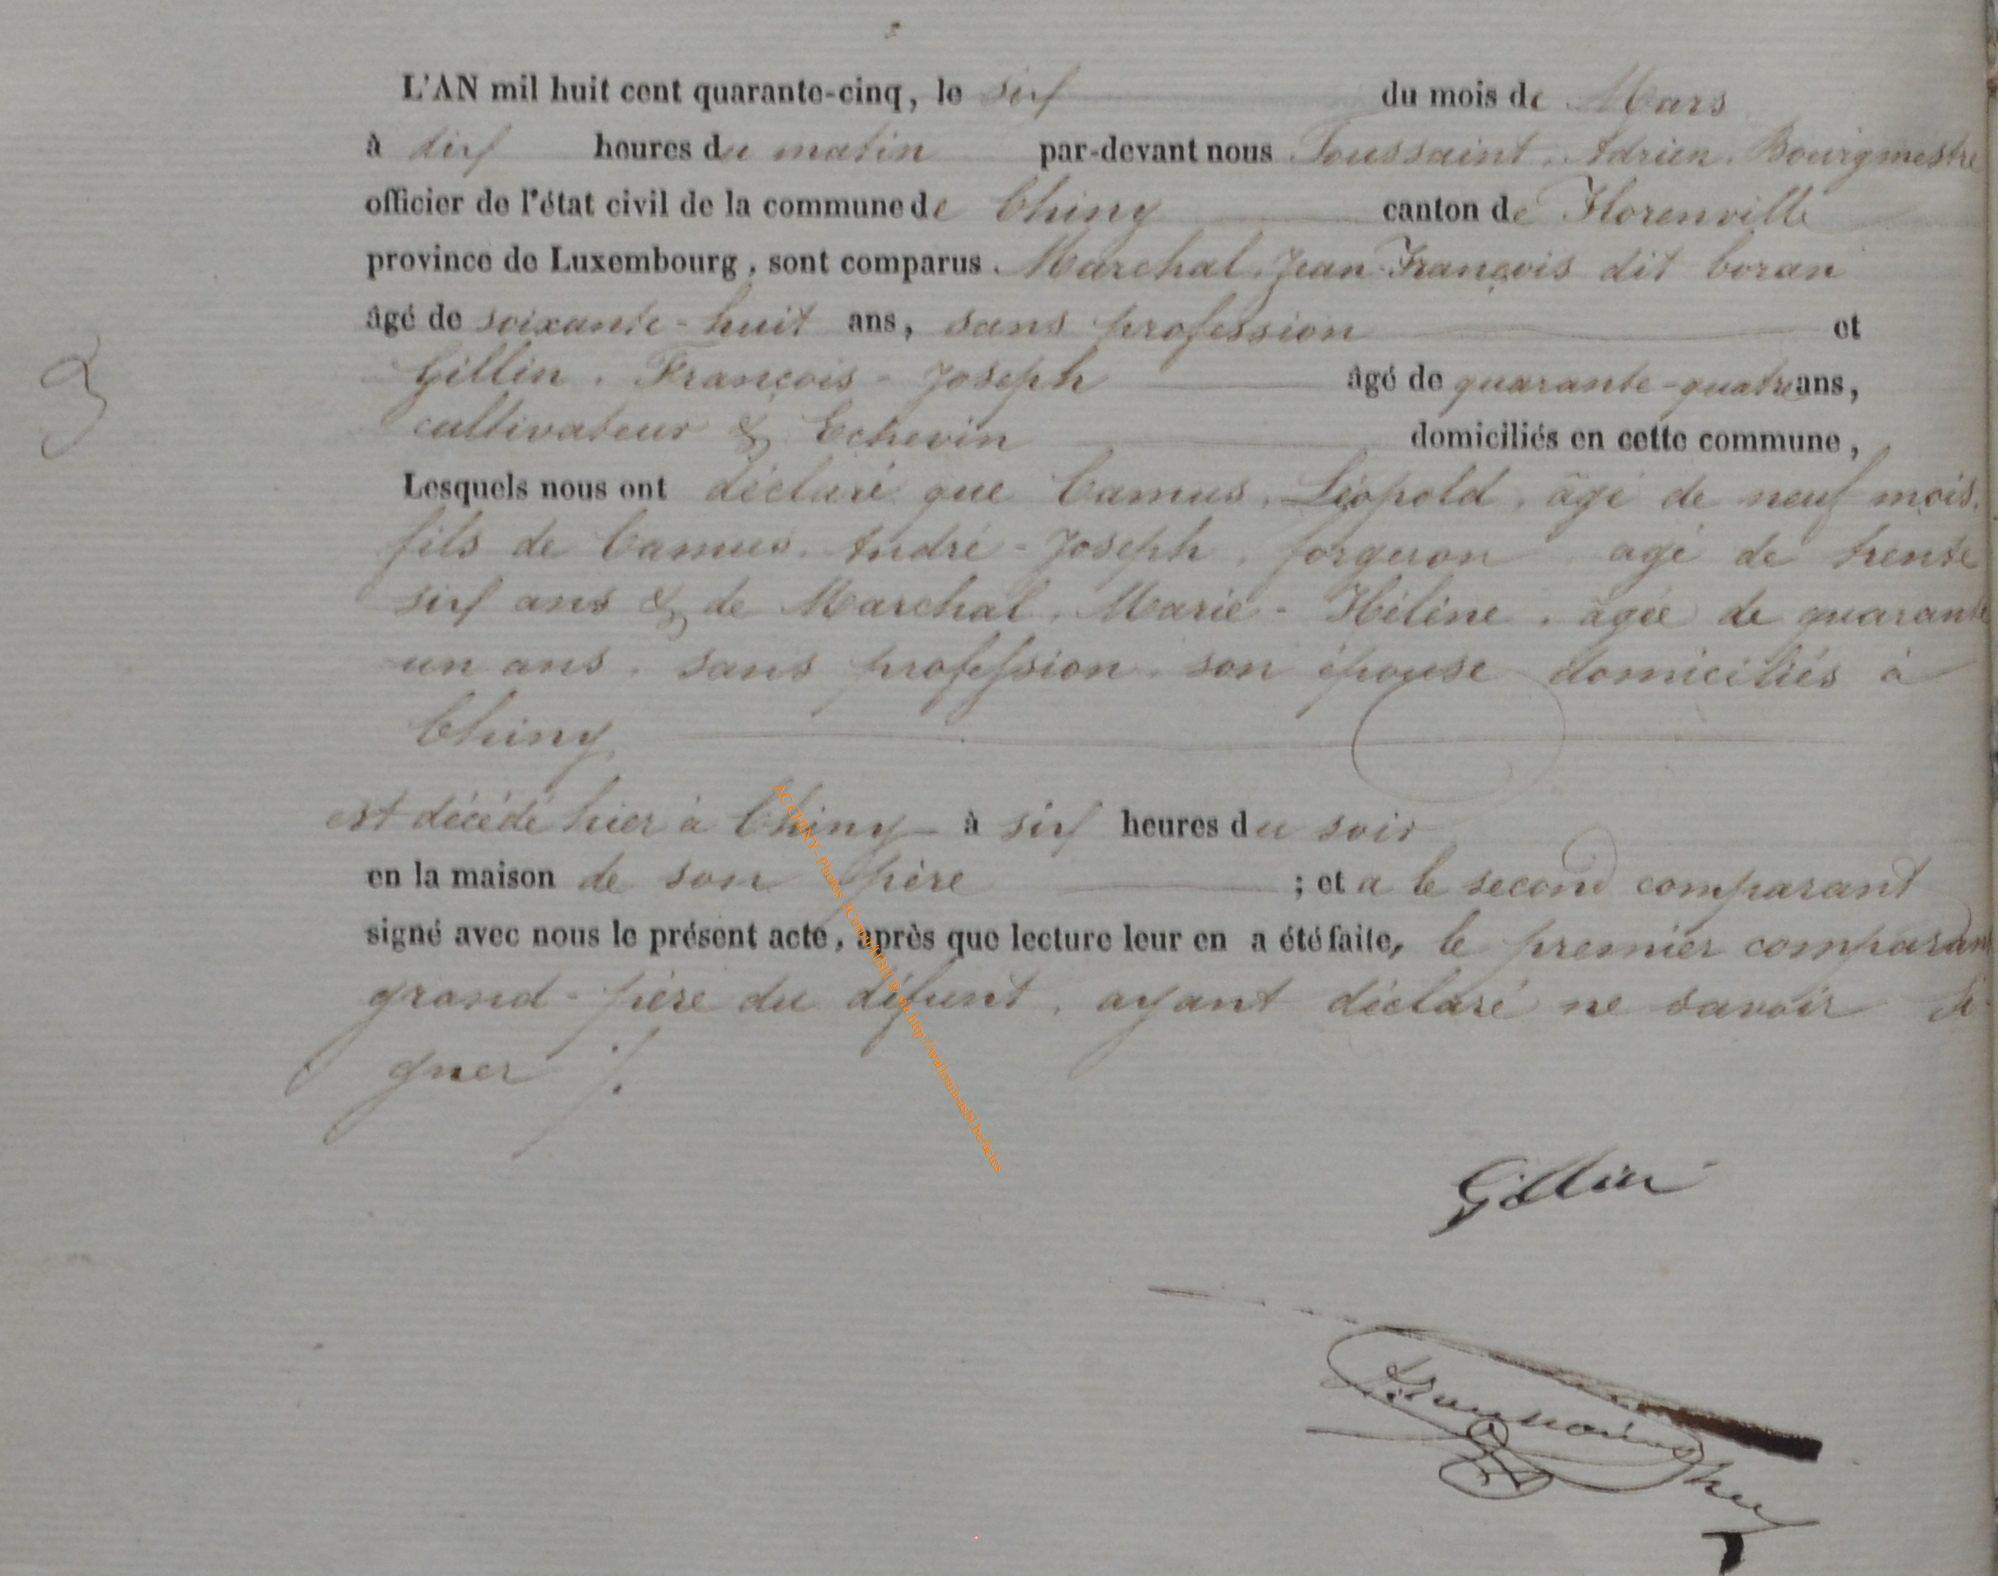 L'AN mil huit cent quarante-cinq, le six du mois de Mars
à dix heures du matin par-devant nous Toussaint, Adrien, Bourgmestre
officier de l'état civil de la commune de Chiny canton de Florenville
province de Luxembourg, sont comparus Marchal, Jean-François dit Coran
âgé de soixante-huit ans, sans profession et
Gillin, François-Joseph âgé de quarante-quatre ans,
cultivateur & Echevin domiciliés en cette commune,
3
Lesquels nous ont déclaré que Camus, Léopold, âgé de neuf mois,
fils de Camus, André-Joseph, forgeron agé de trente
six ans & de Marchal, Marie-Hélène, agée de quarante
un ans, sans profession, son épouse domiciliés à
Chiny
est décédé hier à Chiny à six heures du soir
en la maison de son père ; et a le second comparant
signé avec nous le présent acte, après que lecture leur en a été faite, le premier comparant
grand-père du défunt, ayant déclaré ne savoir si-
gner ./.
Gillin
Toussaint